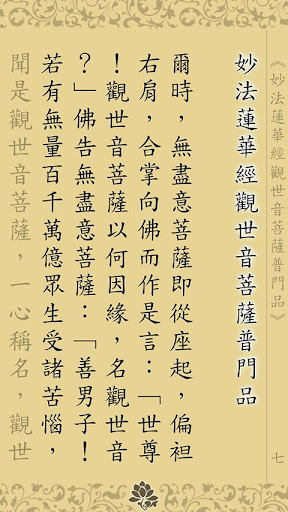 《妙法蓮華經觀世音菩薩普門品》
七
妙法蓮華經觀世音菩薩普門品
爾時，無盡意菩薩即從座起，偏袒
右肩，合掌向佛而作是言：「世尊
！觀世音菩薩以何因緣，名觀世音
？」佛告無盡意菩薩：「善男子！
若有無量百千萬億眾生受諸苦惱，
聞是觀世音菩薩，一心稱名，觀世